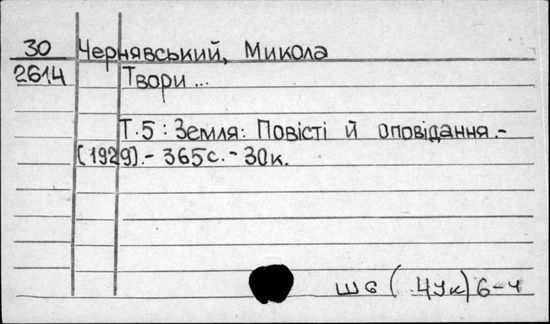 30 Чернявський, Микола
2614 Твори...
Т.5: Земля: Повісті й оповідання.-
[1929].- 365с.- 30к.
ш6 ( 4Ук) 6-4